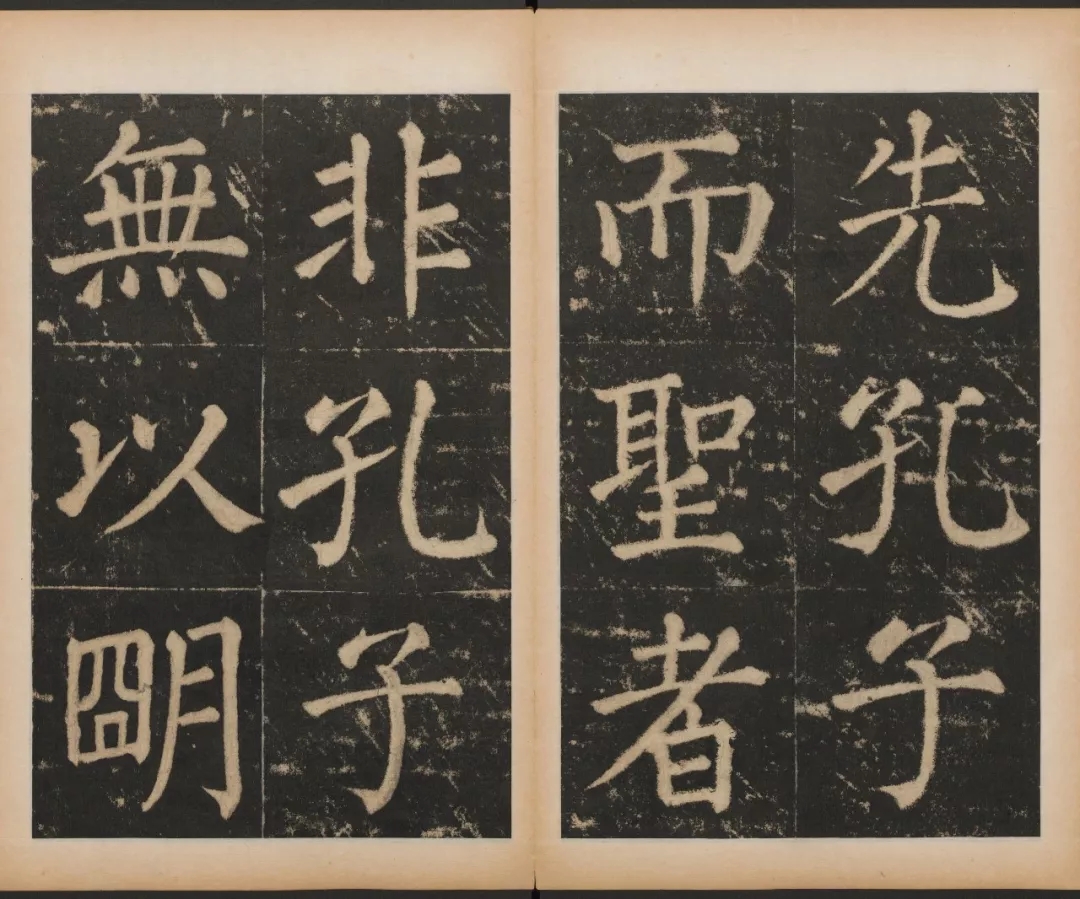 先孔子
而聖者
非孔子
無以朙